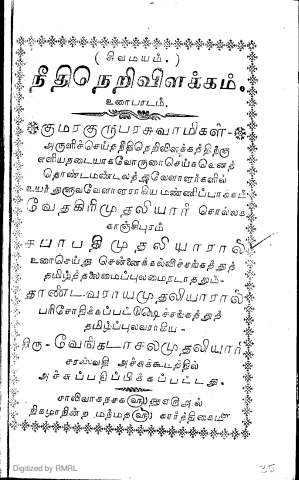 ( சிவமயம். )
நீதிநெறிவிளக்கம்.
உரைபாடம்.
குமரகுருபரசுவாமிகள்-
அருளிச்செய்த நீதிநெறிவிளக்கத்திற்கு
எளியநடையாகவோருரைசெய்கவெனத்
தொண்டமண்டலத்துவேளாளர்களில்
உயர்துளுவவேளாளராகிய மண்ணிப்பாக்கம்
வேதகிரிமுதலியார் சொல்லக
காஞ்சிபுரம்
சபாபதிமுதலியாரால்
உரைசெய்து சென்னைக்கல்விச்சங்கத்துத்
தமிழ்த்தலைமைப்புலமைநடாத்தும்-
தாண்டவராயமுதலியாரால்
பரிசோதிக்கப்பட்டுஷெச்சங்கத்துத்
தமிழ்ப்புலவராகிய-
திரு-வேங்கடாசலமுதலியார்
சரஸ்வதி அச்சுக்கூடத்தில்
அச்சுப்பதிப்பிக்கப்பட்டது.
சாலிவாகநசகா
நிகழாநின்ற மந்மத கார்த்திகைமீ
35
Digitized by RMRL